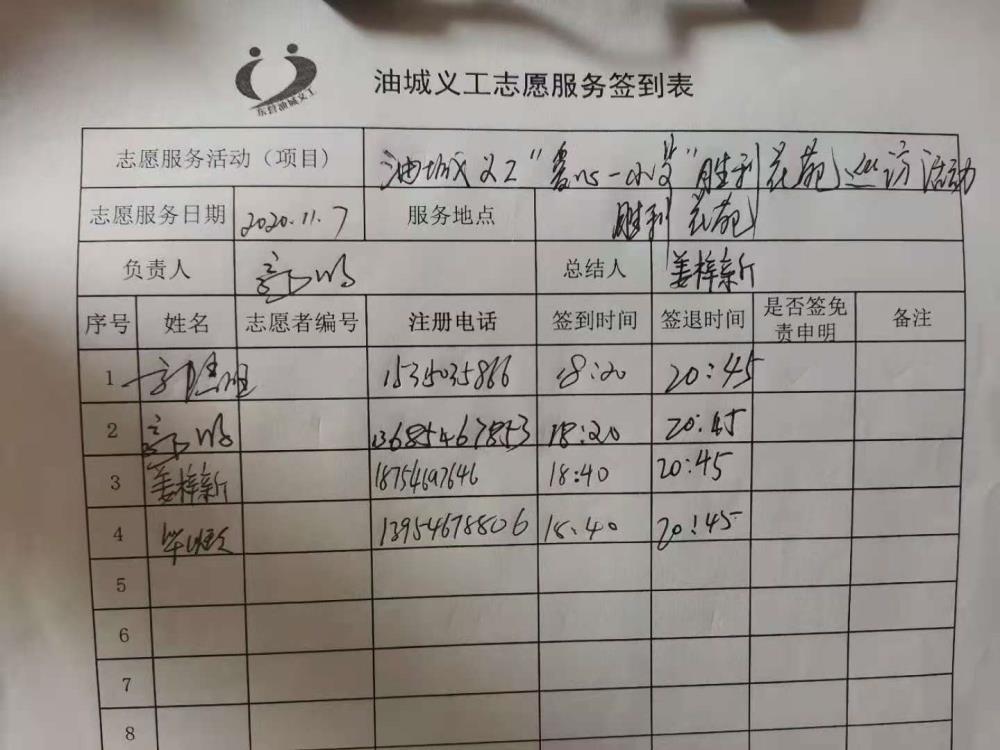 东营油城义工
油城义工志愿服务签到表
志愿服务活动（项目） 油城义工"爱心一小父"胜利花苑巡访活动
志愿服务日期 2020.11.7 服务地点 胜利花苑
负责人 总结人 姜梓新
序号 姓名 志愿者编号 注册电话 签到时间 签退时间 是否签免责申明 备注
1 15315035866 18:20 20:45
2 13685467853 18:20 20:45
3 姜梓新 18754697646 18:40 20:45
4 13954678806 18:40 20:45
5
6
7
8